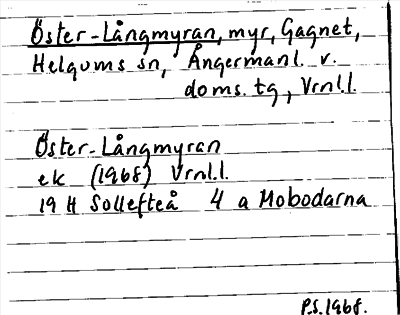 Öster-Långmyran, myr, Gagnet,
Helgums sn, Ångermanl. v.
doms. tg, Vrnl.l.
Öster-Långmyran
ek (1968) Vrnl.l.
19 H Sollefteå 4 a Mobodarna
P.S. 1968.